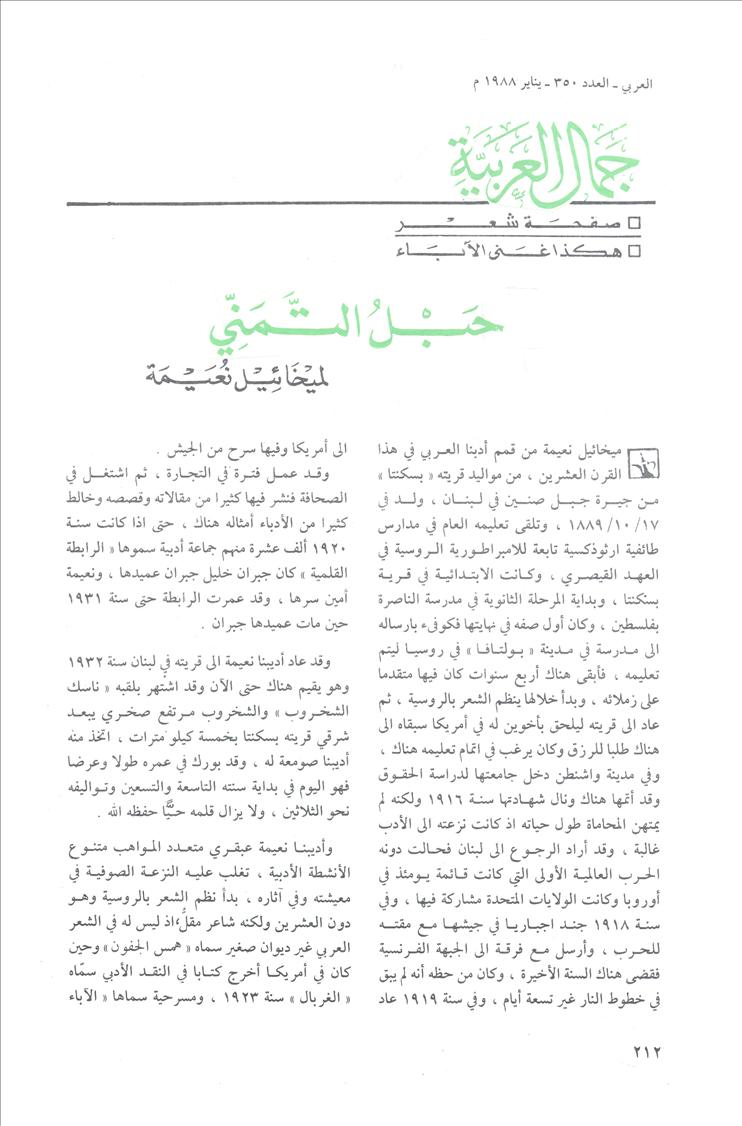 العربي - العدد ٣٥٠ - يناير ١٩٨٨ م
جَمال العَربيّة
□ صفحة شعر
□ هكذا غنى الآباء
حَبْلُ التَّمَنِّي
لميْخَائيْل نُعَيْمَة
ميخائيل نعيمة من قمم أدبنا العربي في هذا
القرن العشرين ، من مواليد قريته « بسكنتا »
من جيرة جبل صنين في لبنان ، ولد في
١٧/ ١٠/ ١٨٨٩ ، وتلقى تعليمه العام في مدارس
طائفية ارثوذكسية تابعة للامبراطورية الروسية في
العهد القيصري ، وكانت الابتدائية في قرية
بسكنتا ، وبداية المرحلة الثانوية في مدرسة الناصرة
بفلسطين ، وكان أول صفه في نهايتها فكوفىء بارساله
الى مدرسة في مدينة « بولتافا » في روسيا ليتم
تعليمه ، فأبقى هناك أربع سنوات كان فيها متقدما
على زملائه ، وبدأ خلالها ينظم الشعر بالروسية ، ثم
عاد الى قريته ليلحق بأخوين له في أمريكا سبقاه الى
هناك طلبا للرزق وكان يرغب في اتمام تعليمه هناك ،
وفي مدينة واشنطن دخل جامعتها لدراسة الحقوق
وقد أتمها هناك ونال شهادتها سنة ١٩١٦ ولكنه لم
يمتهن المحاماة طول حياته اذ كانت نزعته الى الأدب
غالبة ، وقد أراد الرجوع الى لبنان فحالت دونه
الحرب العالمية الأولى التي كانت قائمة يومئذ في
أوروبا وكانت الولايات المتحدة مشاركة فيها ، وفي
سنة ١٩١٨ جند اجباريا في جيشها مع مقته
للحرب ، وأرسل مع فرقة الى الجبهة الفرنسية
فقضى هناك السنة الأخيرة ، وكان من حظه أنه لم يبق
في خطوط النار غير تسعة أيام ، وفي سنة ١٩١٩ عاد
الى أمريكا وفيها سرح من الجيش .
وقد عمل فترة في التجارة ، ثم اشتغل في
الصحافة فنشر فيها كثيرا من مقالاته وقصصه وخالط
كثيرا من الأدباء أمثاله هناك ، حتى اذا كانت سنة
١٩٢٠ ألف عشرة منهم جماعة أدبية سموها « الرابطة
القلمية » كان جبران خليل جبران عميدها ، ونعيمة
أمين سرها ، وقد عمرت الرابطة حتى سنة ١٩٣١
حين مات عميدها جبران .
وقد عاد أديبنا نعيمة الى قريته في لبنان سنة ١٩٣٢
وهو يقيم هناك حتى الآن وقد اشتهر بلقبه « ناسك
الشخروب » والشخروب مرتفع صخري يبعد
شرقي قريته بسكنتا بخمسة كيلو مترات ، اتخذ منه
أديبنا صومعة له ، وقد بورك في عمره طولا وعرضا
فهو اليوم في بداية سنته التاسعة والتسعين وتواليفه
نحو الثلاثين ، ولا يزال قلمه حيًّا حفظه الله .
وأديبنا نعيمة عبقري متعدد المواهب متنوع
الأنشطة الأدبية ، تغلب عليه النزعة الصوفية في
معيشته وفي آثاره ، بدأ نظم الشعر بالروسية وهو
دون العشرين ولكنه شاعر مقلّ، اذ ليس له في الشعر
العربي غير ديوان صغير سماه « همس الجفون » وحين
كان في أمريكا أخرج كتابا في النقد الأدبي سمّاه
« الغربال » سنة ١٩٢٣ ، ومسرحية سماها « الآباء
٢١٢